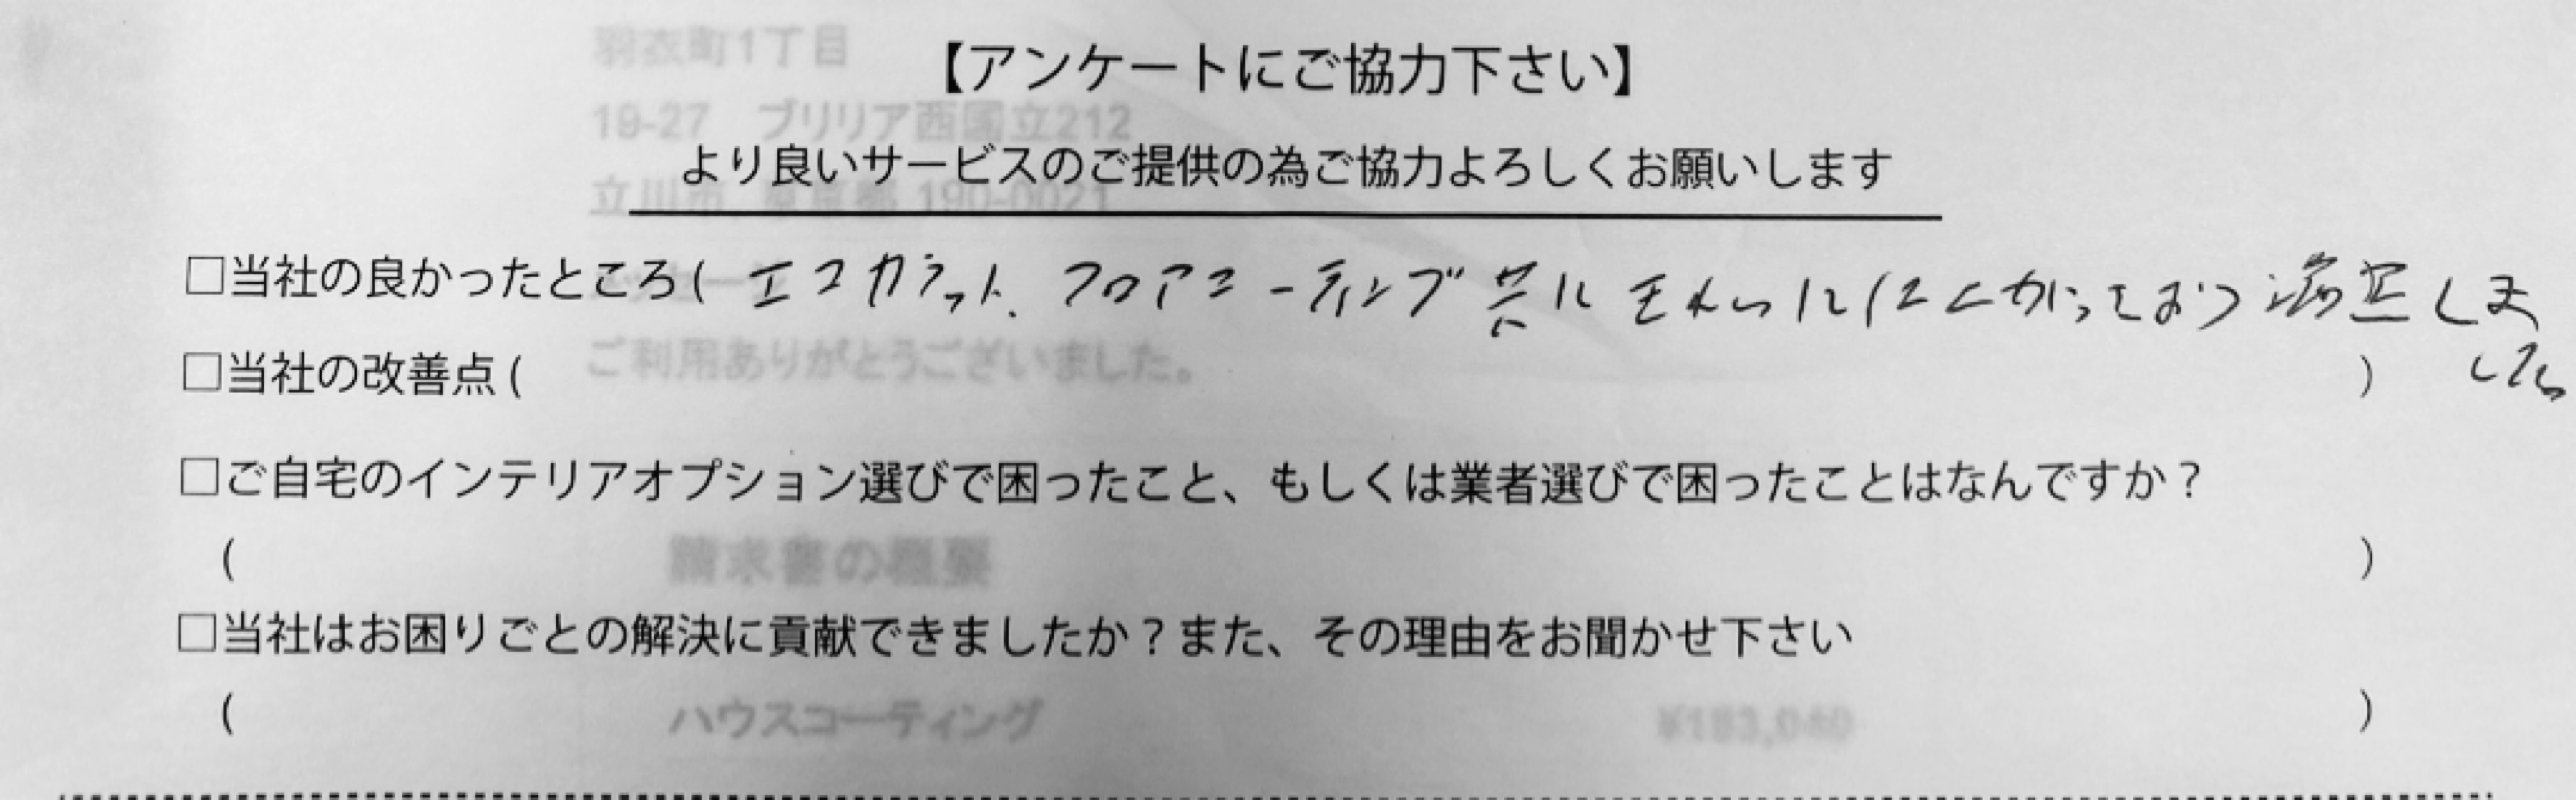 羽衣町1丁目
【アンケートにご協力下さい】
19-27 ブリリア西国立212
より良いサービスのご提供の為ご協力よろしくお願いします
立川市 東京都 190-0021
□当社の良かったところ( エコカラット、フロアコーティング共にきれいにしあがっており満足しま
した
ご利用ありがとうございました。
□当社の改善点( )
□ご自宅のインテリアオプション選びで困ったこと、もしくは業者選びで困ったことはなんですか？
( )
請求書の概要
□当社はお困りごとの解決に貢献できましたか？また、その理由をお聞かせ下さい
( )
ハウスコーティング